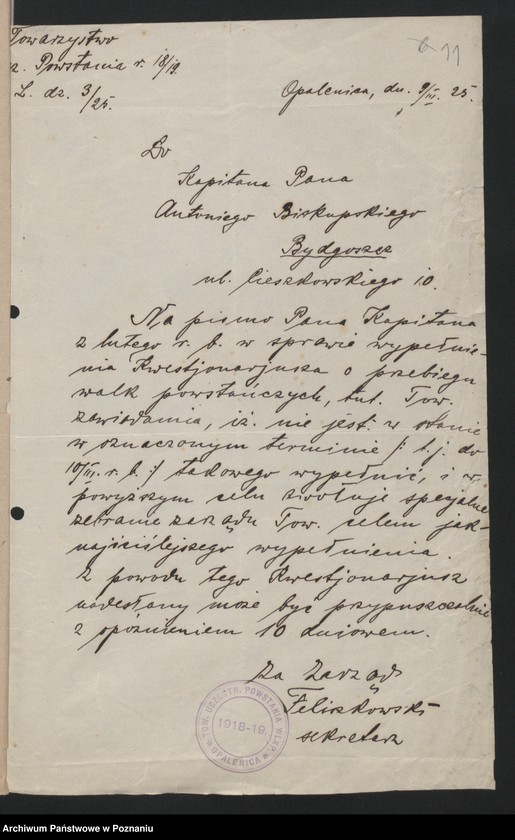 Towarzystwo
Powstania r. 18/19.
L. dz. 3/25.
6 11
Opalenica, dn. 9/III. 25.
Do
Kapitana Pana
Antoniego Biskupskiego
Bydgoszcz
ul. Cieszkowskiego 10.
Na pismo Pana Kapitana
z lutego r. b. w sprawie wypełnie-
nia Kwestjonarjusza o przebiegu
walk powstańczych, tut. Tow.
zawiadamia, iż nie jest w stanie
w oznaczonym terminie /: t. j. do
10/III. r. b. :/ takowego wypełnić, i w
powyższym celu zwołuje specjalne
zebranie zarządu Tow. celem jak-
najściślejszego wypełnienia.
Z powodu tego Kwestjonarjusz
nadesłany może być przypuszczalnie
z opóźnieniem 10 dniowem.
Za Zarząd
Feliszkowski
sekretarz
TOW. UCZESTN. POWSTANIA WLKP.
1918-19.
OPALENICA
Archiwum Państwowe w Poznaniu